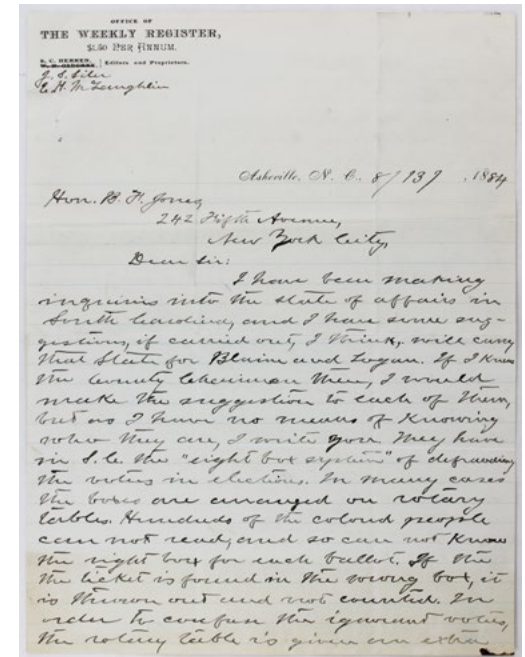 OFFICE OF
THE WEEKLY REGISTER,
$1.50 PER ANNUM.
Editors and Proprietors.
J. S.
E. H. McLaughlin
Asheville, N. C. 8/13/ 1884
Hon. B. F. Jones,
242 Fifth Avenue,
New York City,
Dear Sir:
I have been making
inquiries into the state of affairs in
South Carolina, and I have some sug-
gestions, if carried out, I think, will carry
that State for Blaine and Logan. If I knew
the County Chairman there, I would
make the suggestion to each of them,
but as I have no means of knowing
who they are, I write you. They have
in S.C. the "eight box system" of defrauding
the voters in elections. In many cases
the boxes are arranged on rotary
tables. Hundreds of the colored people
can not read, and so can not know
the right box for each ballot. If the
the ticket is found in the wrong box, it
is thrown out and not counted. In
order to confuse the ignorant voters,
the rotary table is given an extra